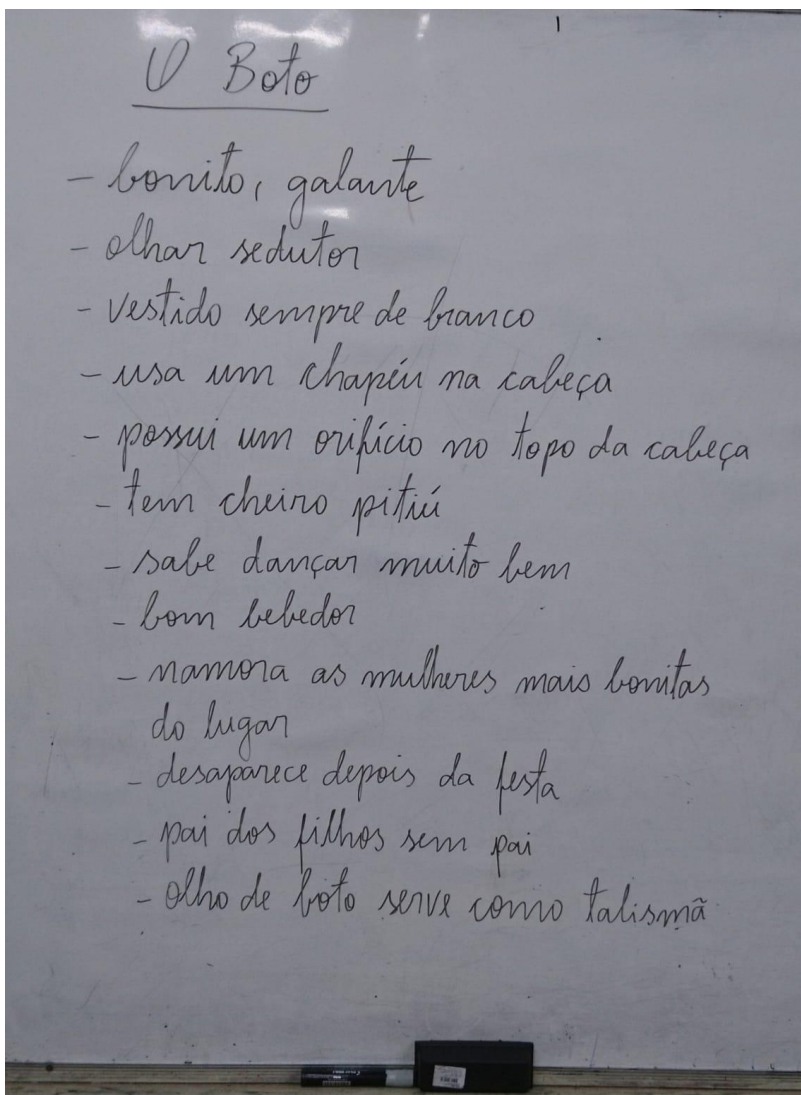 O Boto
- bonito, galante
- olhar sedutor
- vestido sempre de branco
- usa um chapéu na cabeça
- possui um orifício no topo da cabeça
- tem cheiro pitiú
- sabe dançar muito bem
- bom bebedor
- namora as mulheres mais bonitas
do lugar
- desaparece depois da festa
- pai dos filhos sem pai
- olho de boto serve como talismã